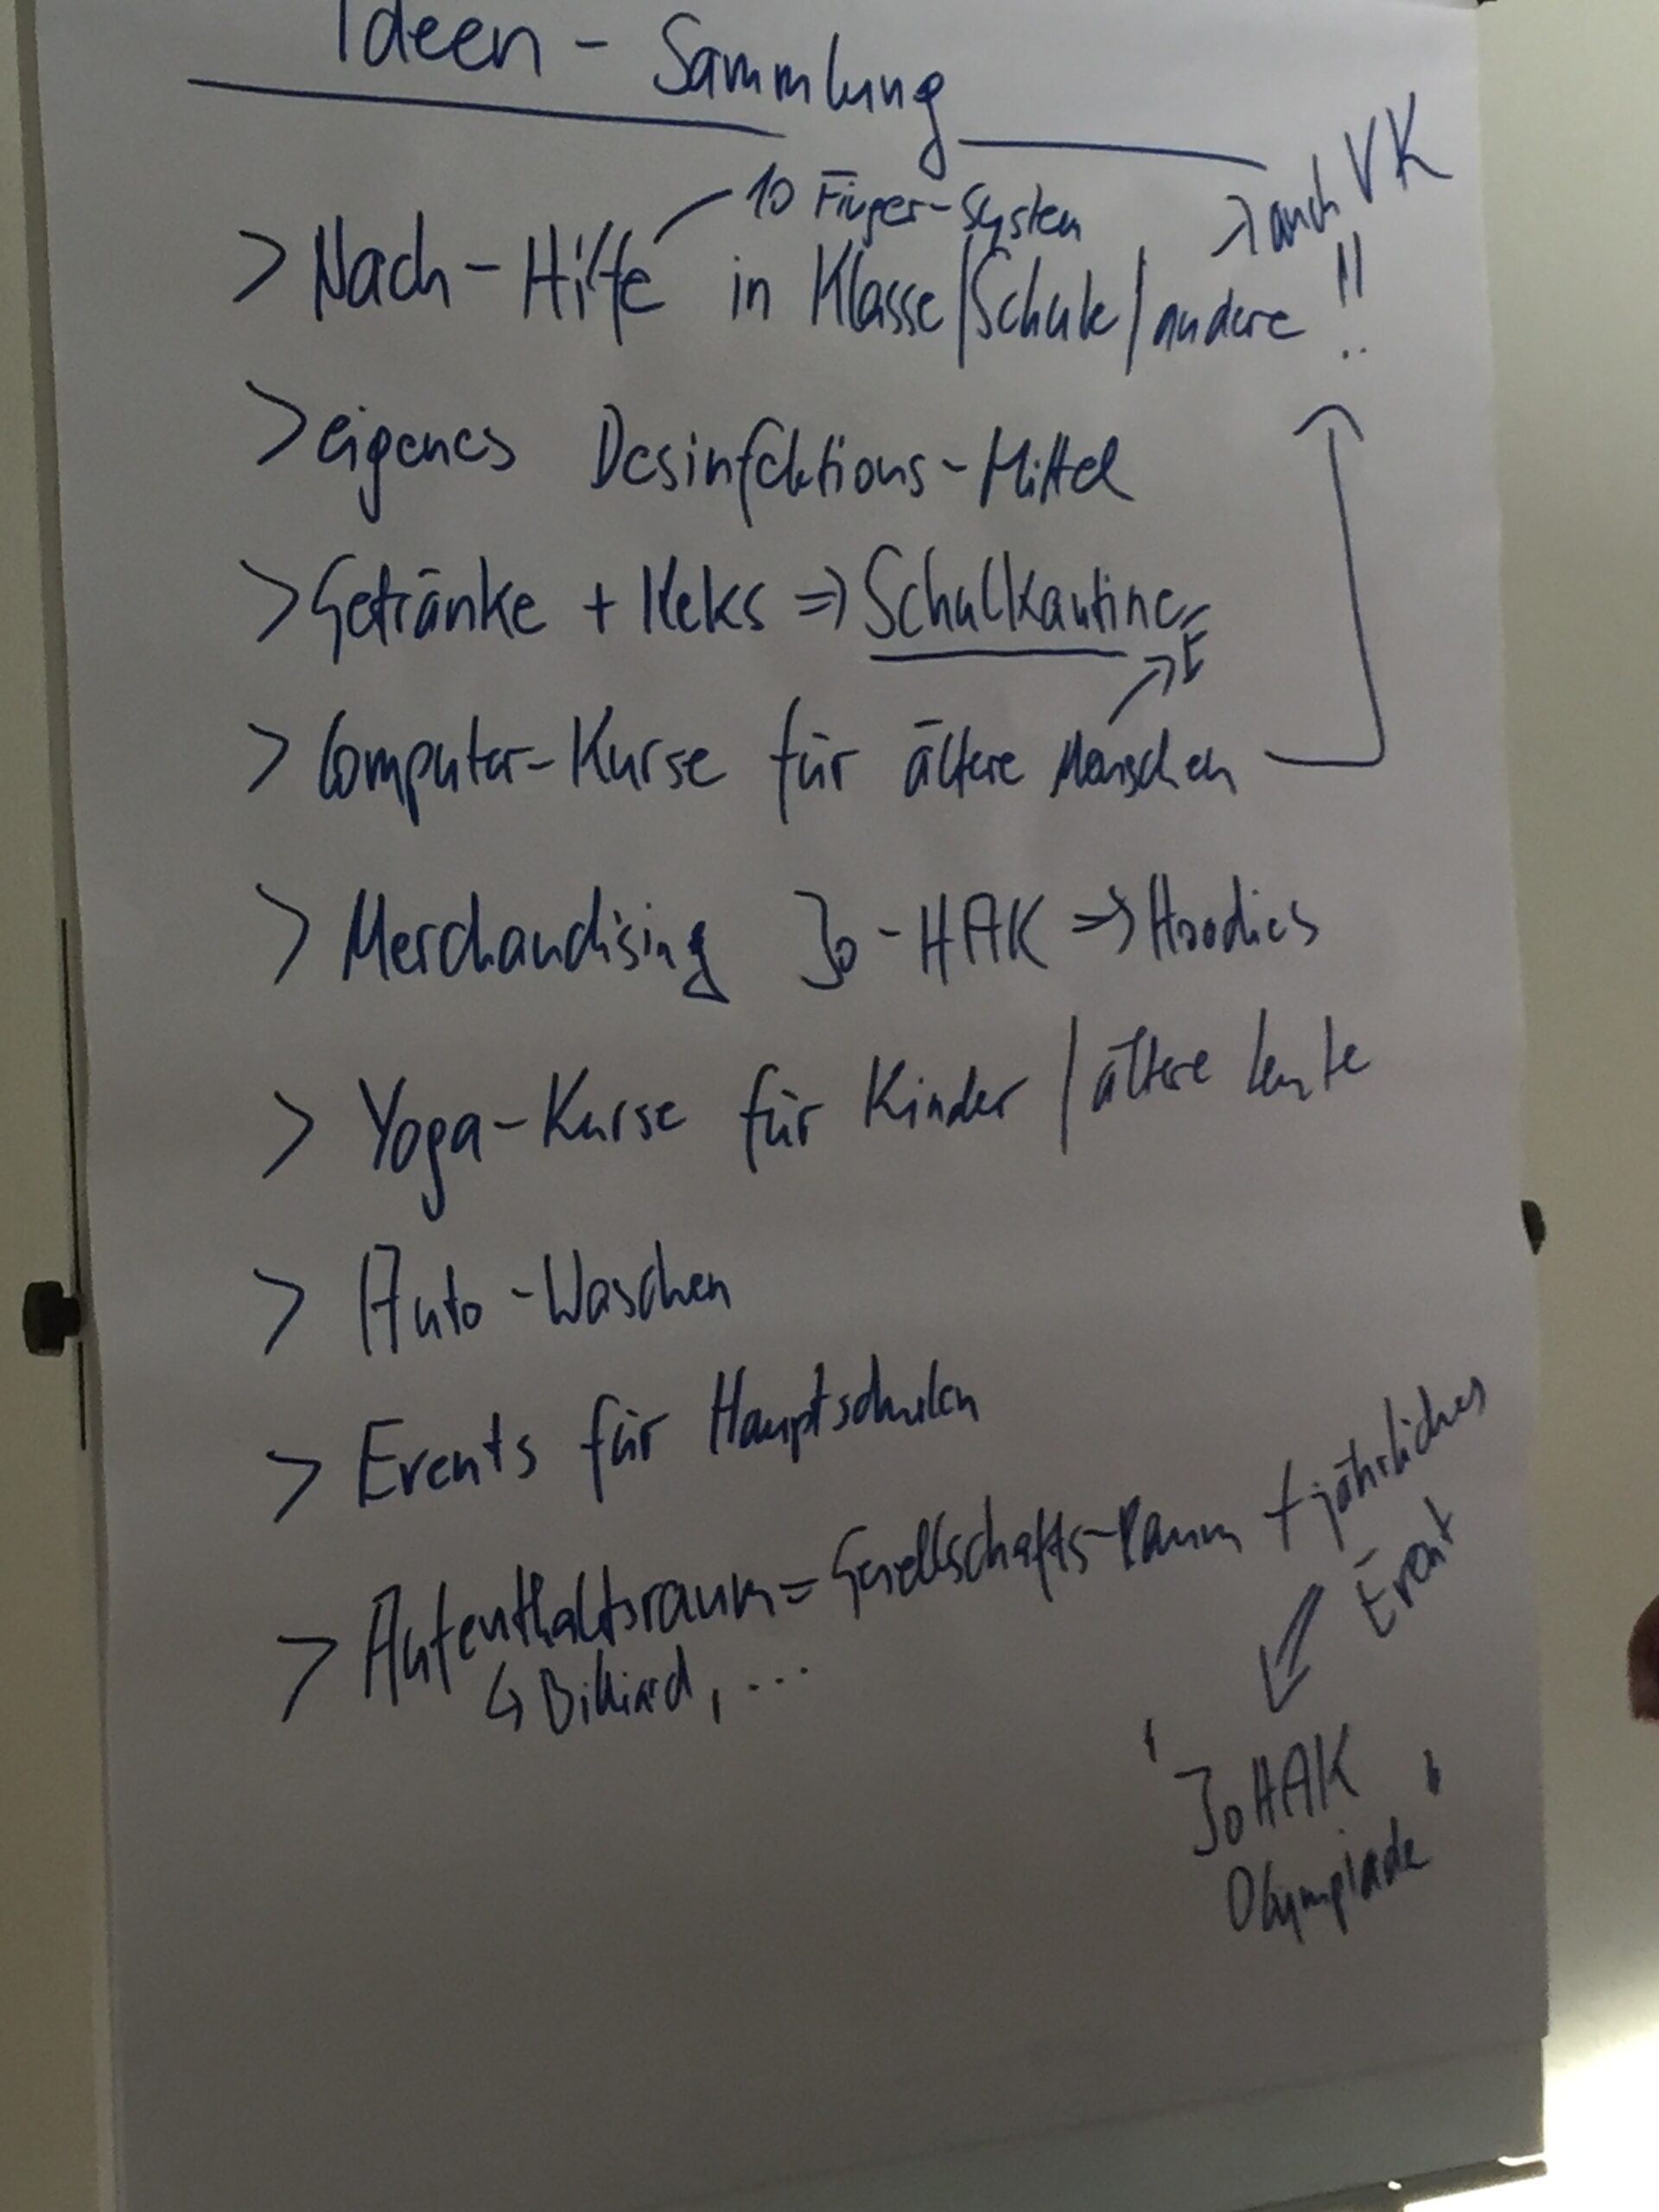 Ideen - Sammlung
10 Finger-System
auch VK
> Nach-Hilfe in Klasse/Schule/andere !!
> eigenes Desinfektions-Mittel
> Getränke + Keks => Schulkantine
> Computer-Kurse für ältere Menschen
> Merchandising Jo-HAK => Hoodies
> Yoga-Kurse für Kinder / ältere Leute
> Auto-Waschen
> Events für Hauptschulen
> Aufenthaltsraum = Gesellschafts-Raum + jährliches
Event
↳ Billiard, ...
' JoHAK '
Olympiade